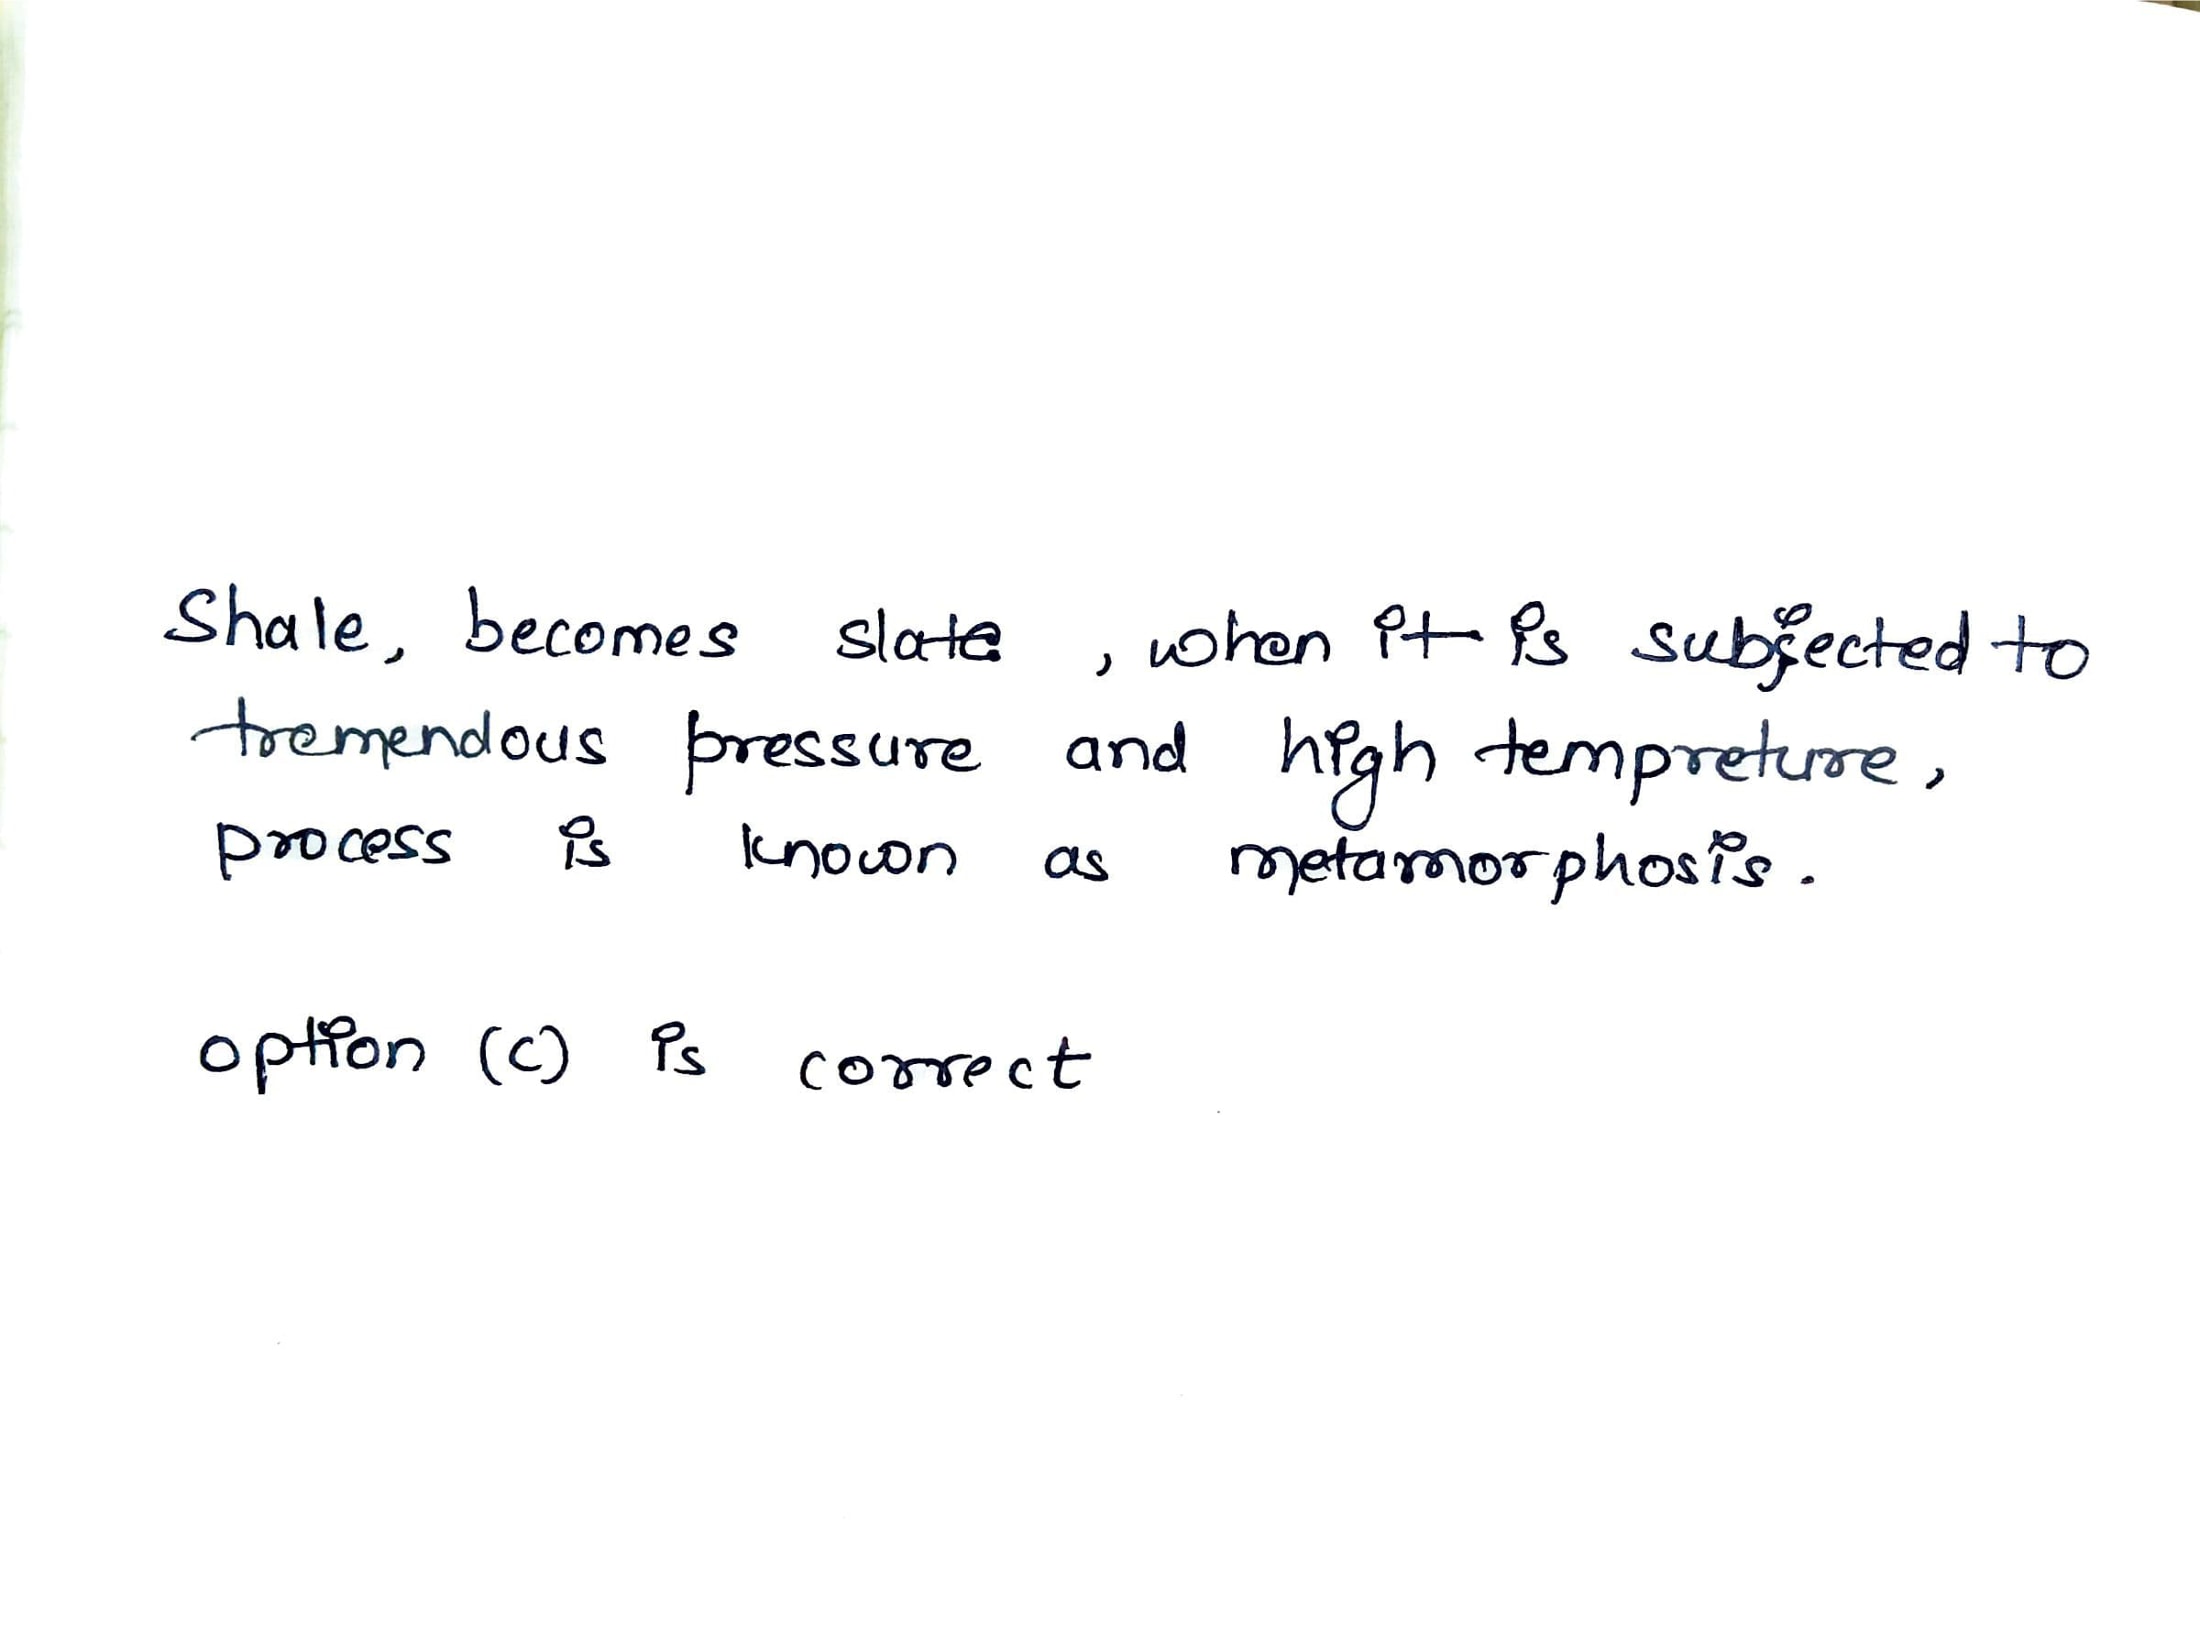 Shale, becomes slate , when it is subjected to
tremendous pressure and high tempreture,
process is known as metamorphosis.
option (c) is correct